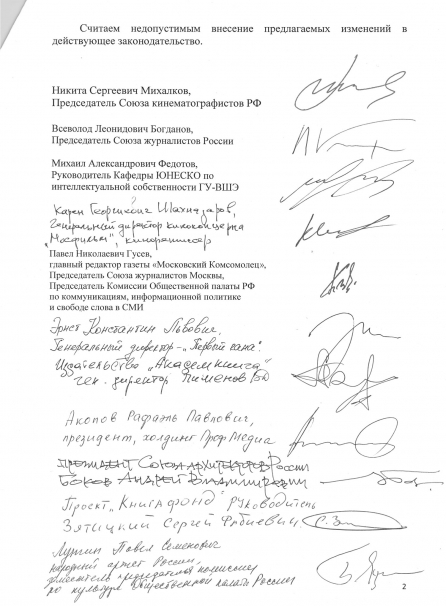 Считаем недопустимым внесение предлагаемых изменений в
действующее законодательство.
Никита Сергеевич Михалков,
Председатель Союза кинематографистов РФ
Всеволод Леонидович Богданов,
Председатель Союза журналистов России
Михаил Александрович Федотов,
Руководитель Кафедры ЮНЕСКО по
интеллектуальной собственности ГУ-ВШЭ
Карен Георгиевич Шахназаров,
Генеральный директор киноконцерна
„Мосфильм", кинорежиссер
Павел Николаевич Гусев,
главный редактор газеты «Московский Комсомолец»,
Председатель Союза журналистов Москвы,
Председатель Комиссии Общественной палаты РФ
по коммуникациям, информационной политике
и свободе слова в СМИ
Эрнст Константин Львович,
Генеральный директор - „Первый канал"
Издательство „Академкнига"
ген. директор Пименов
Акопов Рафаэль Павлович,
президент, холдинг ПрофМедиа
президент Союза архитекторов России
Боков Андрей Владимирович
Проект „Книгафонд" руководитель
Зятицкий Сергей
Лунгин Павел Семенович
народный артист России,
заместитель председателя комиссии
по культуре Общественной палаты России
2